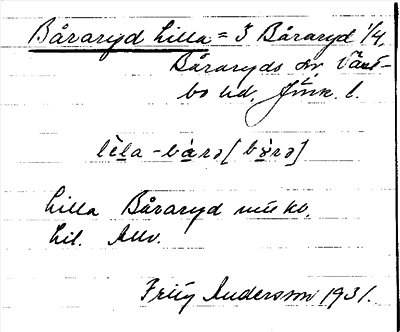 Båraryd Lilla = 3 Båraryd 1/4,
Båraryds sn, Väst-
bo hd, Jönk. l.
lìla - bàrə [bɤ̀rə]
Lilla Båraryd
lil.
Frity Andersson 1931.